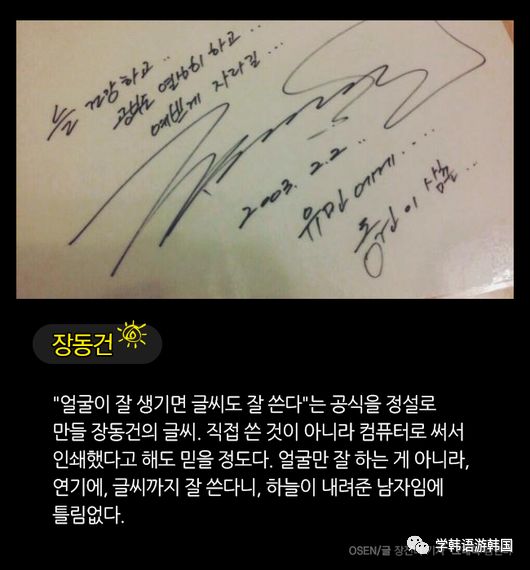 늘 건강하고..
공부도 열심히 하고..
예쁘게 자라길...
2003. 2. 2..
유민에게....
동건이 삼촌..
장동건
"얼굴이 잘 생기면 글씨도 잘 쓴다"는 공식을 정설로
만들 장동건의 글씨. 직접 쓴 것이 아니라 컴퓨터로 써서
인쇄했다고 해도 믿을 정도다. 얼굴만 잘 하는 게 아니라,
연기에, 글씨까지 잘 쓴다니, 하늘이 내려준 남자임에
틀림없다.
OSEN/글
学韩语游韩国